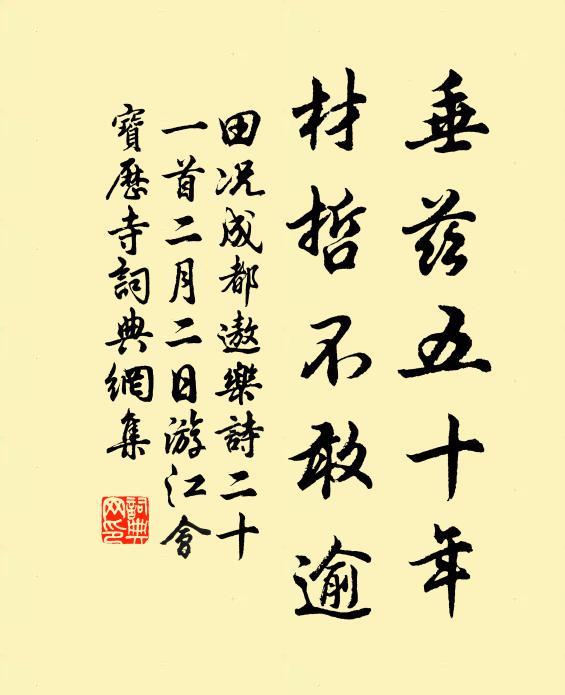 垂茲五十年
材哲不敢逾
田况成都遨樂詩二十
一首二月二日游江會
寶歷寺詞典網集
詞典
网印